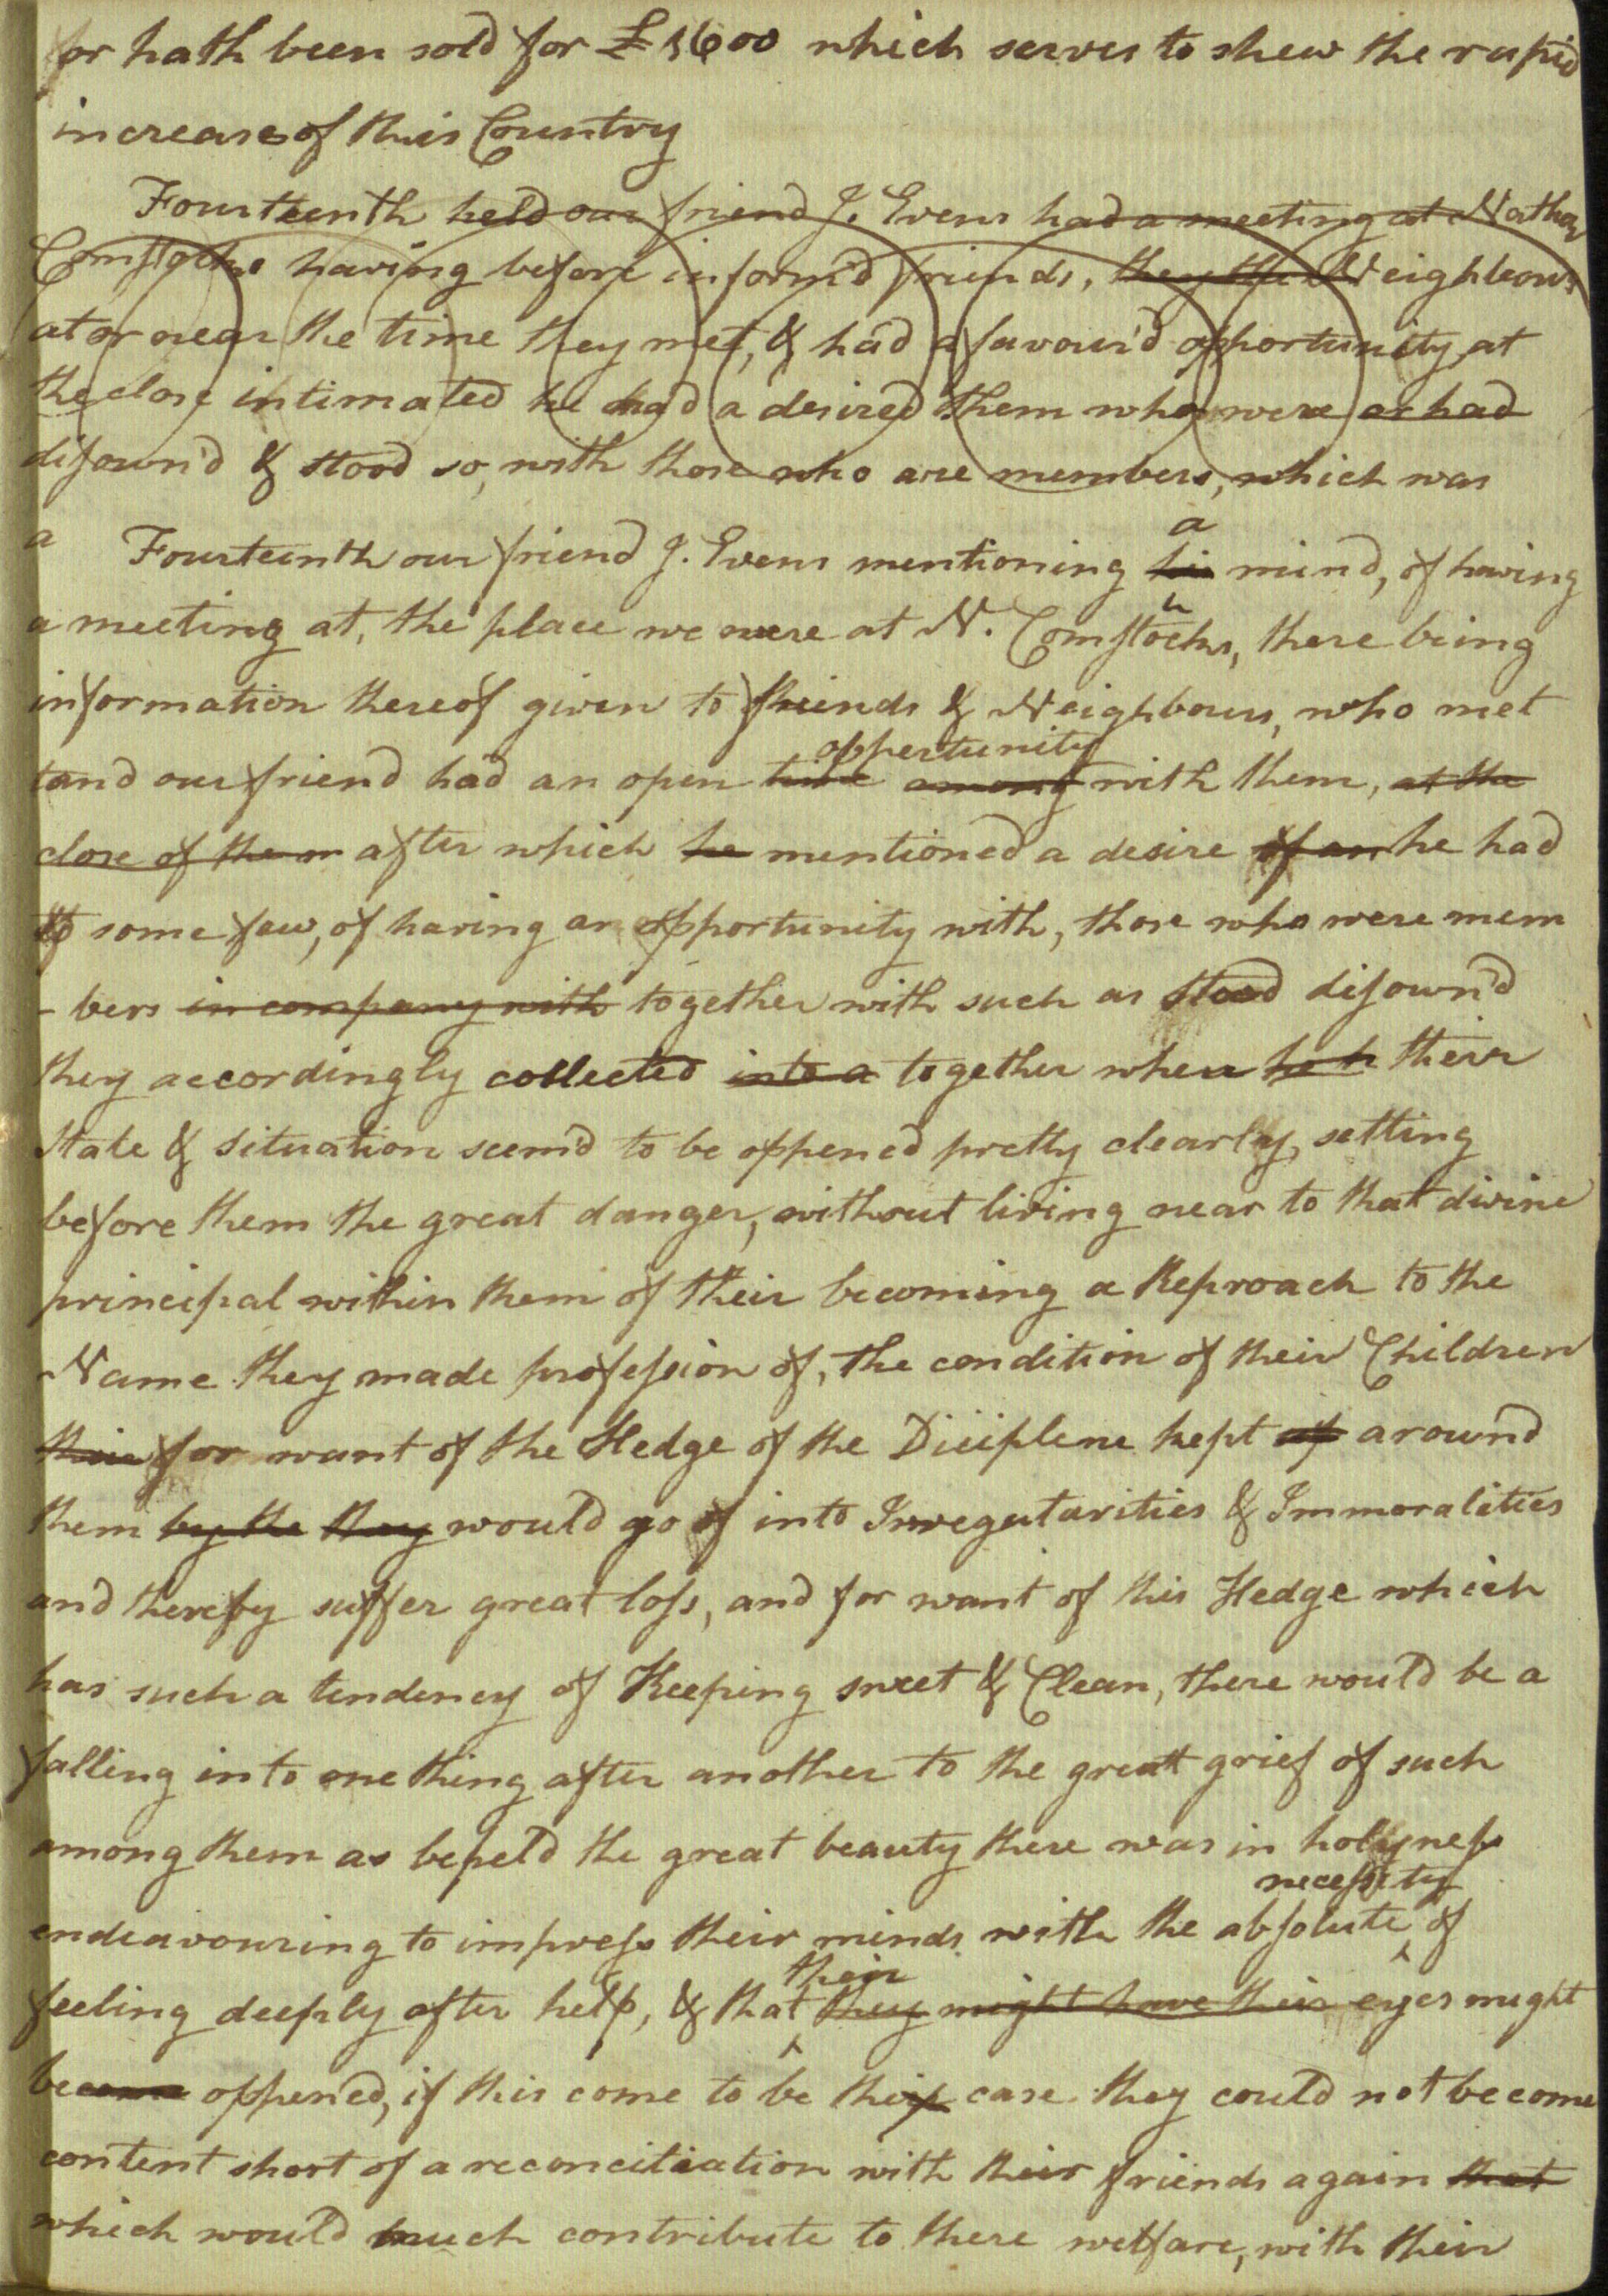 or hath been sold for £1600 which serves to shew the rapid
increase of this Country
Fourteenth held our friend J. Evens had a meeting at Nathan
Comstocks having before inform'd friends, they the Neighbours
at or near the time they met, & had a favour'd opportunity at
the close intimated he had a desired them who were or had
disown'd & stood so, with those who are members, which was
a Fourteenth our friend J. Evens mentioning his a mind, of having
a meeting at, the place we were at N. Comstocks, there being
information thereof given to friends & Neighbours, who met
and our friend had an open time opportunity among with them, at the
close of the m after which he mentioned a desire of an he had
to some few, of having an opportunity with, those who were mem
- bers in company with together with such as stood disown'd
they accordingly collected into a together when their
State & situation seem'd to be oppened pretty clearly, setting
before them the great danger, without living near to that divine
principal within them of their becoming a Reproach to the
Name they made profession of, the condition of their Children
their for want of the Hedge of the Diciplene kept up around
them by the they would go of into Irregutarities & Immoralities
and thereby suffer great loss, and for want of this Hedge which
has such a tendency of Keeping sweet & Clean, there would be a
falling into one thing after another to the great grief of such
among them as beheld the great beauty there was in holyness
endeavouring to impress their minds with the absolute necessity of
feeling deeply after help, & that their they might have their eyes might
become oppened, if this come to be the case they could not become
content short of a reconciliation with their friends again that
which would much contribute to there welfare, with their